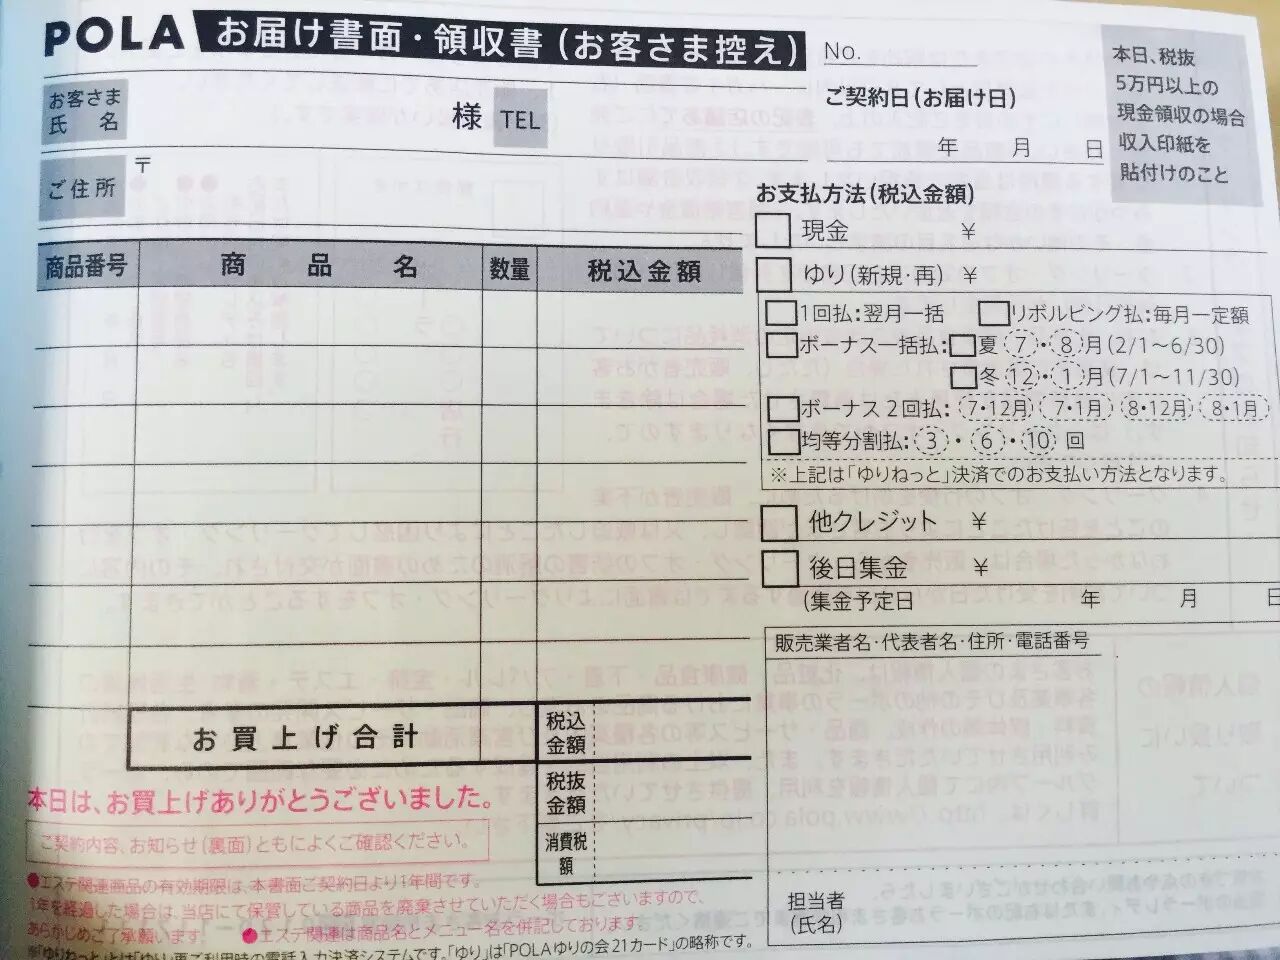 POLA お届け書面・領収書(お客さま控え) No.
本日、税抜
5万円以上の
現金領収の場合
収入印紙を
貼付けのこと
お客さま
氏 名
様 TEL
ご契約日(お届け日)
年 月 日
ご住所 〒
お支払方法(税込金額)
現金 ¥
ゆり(新規・再) ¥
1回払:翌月一括 リボルビング払:毎月一定額
ボーナス一括払: 夏 7・8月(2/1〜6/30)
冬 12・1月(7/1〜11/30)
ボーナス2回払: 7・12月 7・1月 8・12月 8・1月
均等分割払: 3・6・10 回
※上記は「ゆりねっと」決済でのお支払い方法となります。
他クレジット ¥
後日集金 ¥
(集金予定日 年 月 日
販売業者名・代表者名・住所・電話番号
担当者
(氏名)
商品番号 商品名 数量 税込金額
お買上げ合計
税込
金額
税抜
金額
消費税
額
本日は、お買上げありがとうございました。
ご契約内容、お知らせ(裏面)ともによくご確認ください。
●エステ関連商品の有効期限は、本書面ご契約日より1年間です。
1年を経過した場合は、当店にて保管している商品を廃棄させていただく場合もございますので、
あらかじめご了承願います。 ●エステ関連は商品名とメニュー名を併記しております。
※「ゆりねっと」とは「ゆり」再ご利用時の電話入力決済システムです。「ゆり」は「POLAゆりの会21カード」の略称です。